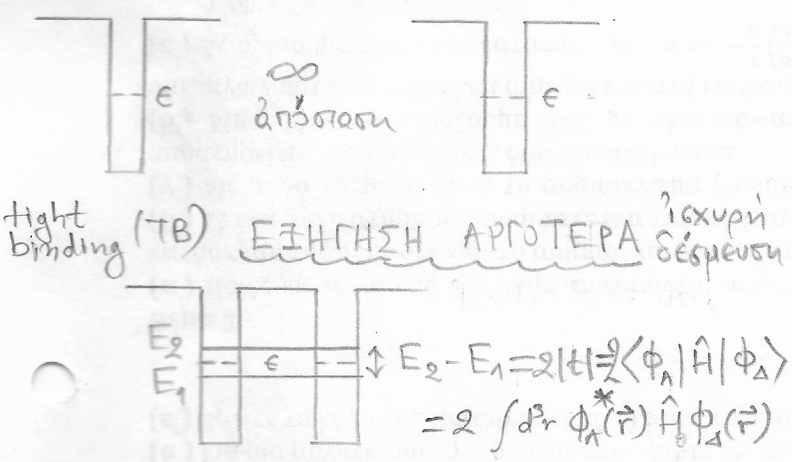 ϵ ∞ ϵ
ἀπόσταση
tight
binding (TB) ΕΞΗΓΗΣΗ ΑΡΓΟΤΕΡΑ ἰσχυρή
δέσμευση
E₂ ϵ ↕ E₂ - E₁ = 2|t| = 2⟨ϕ_Λ|Ĥ|ϕ_Δ⟩
E₁
= 2 ∫d³r ϕ_Λ*(r⃗) Ĥ ϕ_Δ(r⃗)